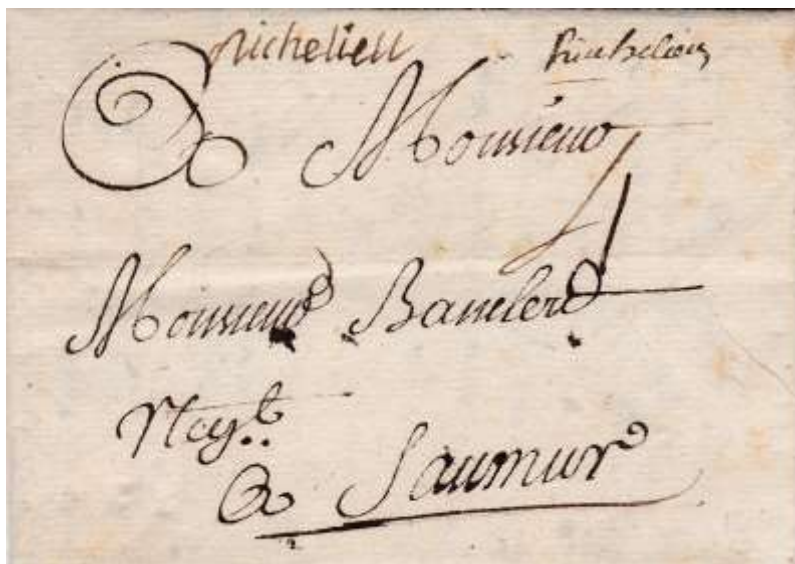 Richelieu Richelieu
A Monsieur
4
Monsieur
Neg.t
A Saumur